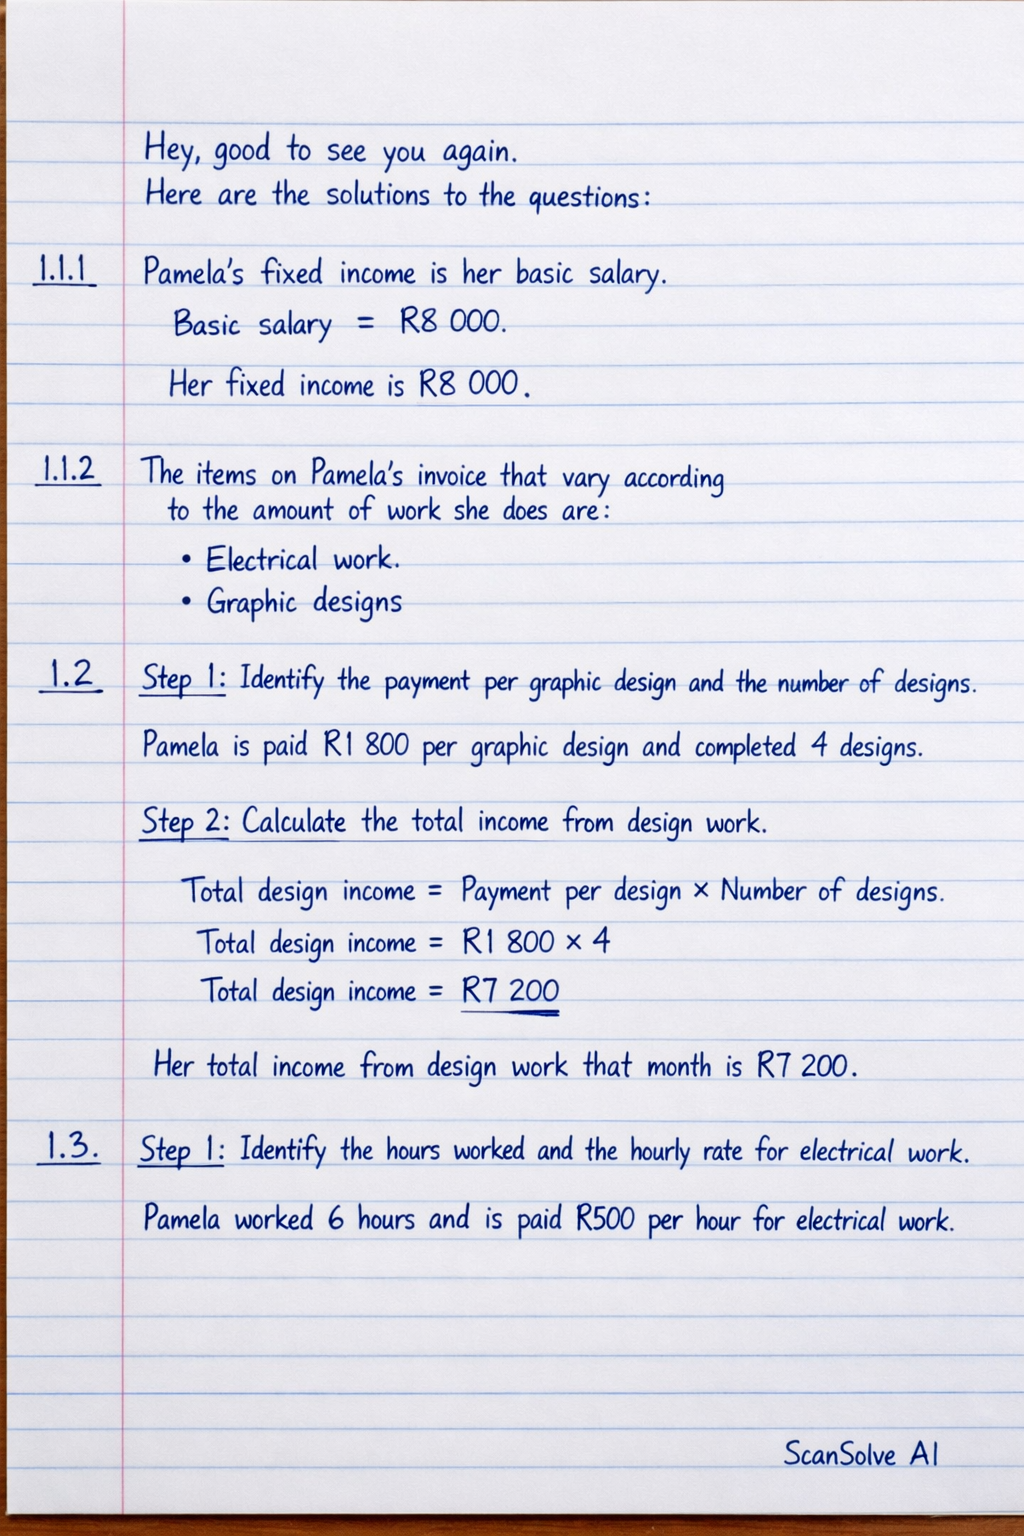 Hey, good to see you again.
Here are the solutions to the questions:
1.1.1 Pamela's fixed income is her basic salary.
Basic salary = R8 000.
Her fixed income is R8 000.
1.1.2 The items on Pamela's invoice that vary according
to the amount of work she does are:
• Electrical work.
• Graphic designs
1.2 Step 1: Identify the payment per graphic design and the number of designs.
Pamela is paid R1 800 per graphic design and completed 4 designs.
Step 2: Calculate the total income from design work.
Total design income = Payment per design × Number of designs.
Total design income = R1 800 × 4
Total design income = R7 200
Her total income from design work that month is R7 200.
1.3. Step 1: Identify the hours worked and the hourly rate for electrical work.
Pamela worked 6 hours and is paid R500 per hour for electrical work.
ScanSolve AI